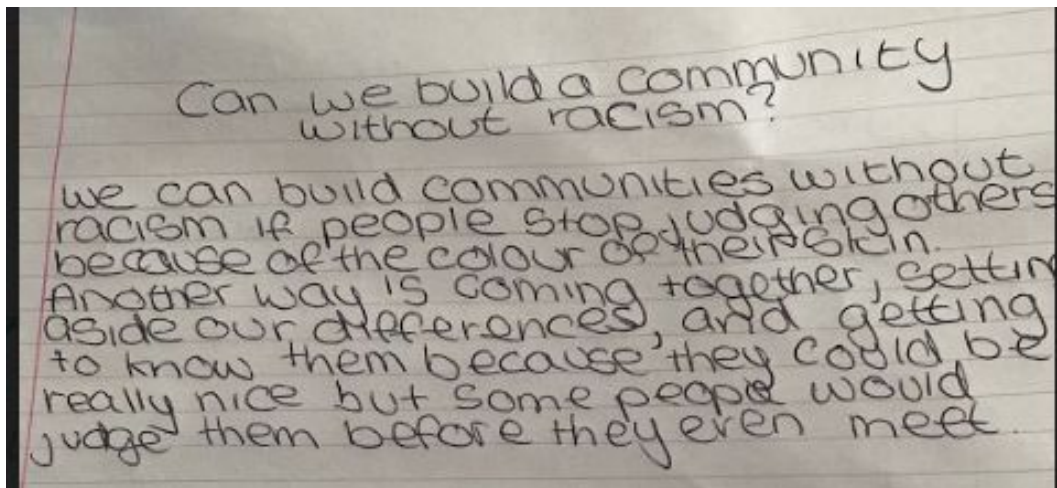 Can we build a community
without racism?
we can build communities without
racism if people stop judging others
because of the colour of their skin.
Another way is coming together, settin
aside our differences, and getting
to know them because they could be
really nice but some people would
judge them before they even meet.